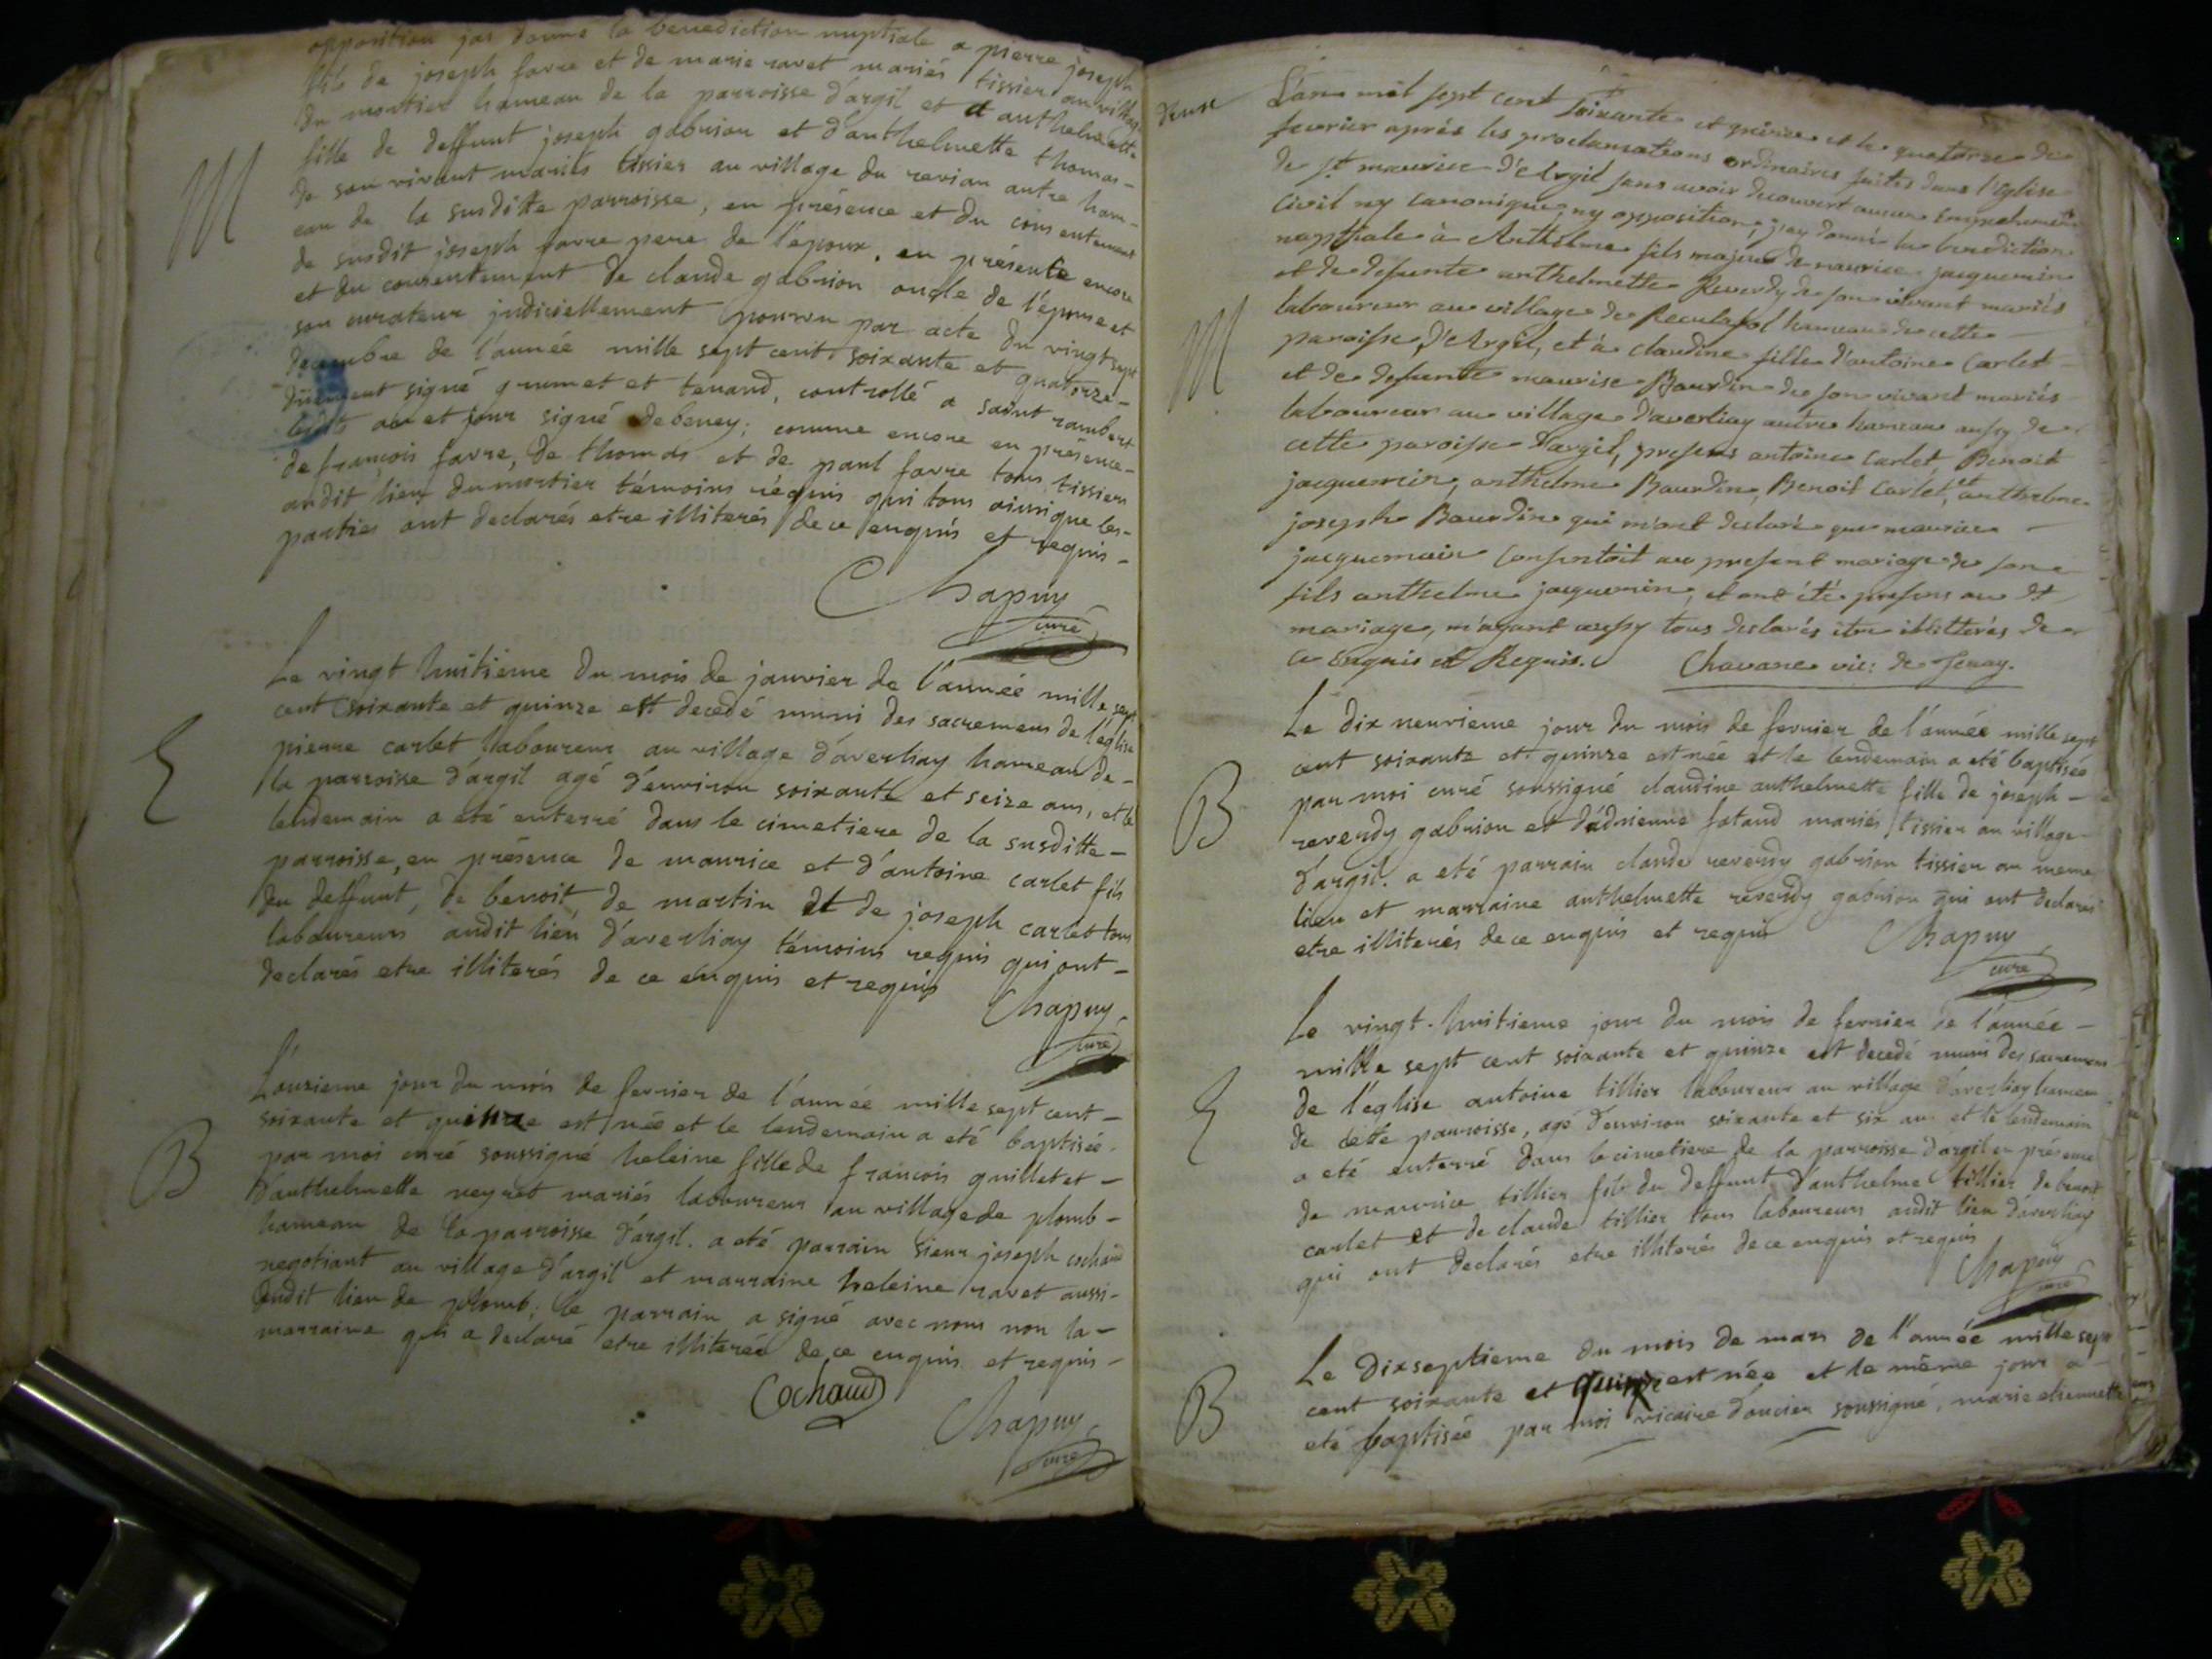 opposition jai donné la benediction nuptiale a pierre joseph
fils de joseph favre et de marie ravet mariés tissier au village
du montier hameau de la parroisse d'argil et a anthelmette
fille de deffunt joseph gabrion et d'anthelmette thomas-
de son vivant mariés tissier au village du revian autre ham-
eau de la susditte parroisse, en présence et du consentement
de susdit joseph favre pere de l'époux, en présence encore
et du consentement de claude gabrion oncle de l'épouse et
son curateur judiciellement pourvu par acte du vingt sept
decembre de l'année mille sept cent soixante et quatorze-
duement signé grumet et tenand, controllé a saint rambert
ledit an et jour signé debeney; comme encore en présence-
de françois favre, de thomas et de paul favre tous tissiers
audit lieu du montier témoins réquis qui tous ainsi que les-
parties ont declarés etre illiterés de ce enquis et requis-
Chapuy
curé
M
Le vingt huitième du mois de janvier de l'année mille sept
cent soixante et quinze est decedé muni des sacremens de l'église
pierre carlet laboureur au village d'averliay hameau de-
la parroisse d'argil agé d'environ soixante et seize ans, et le
lendemain a été enterré dans le cimetiere de la susditte-
parroisse, en présence de maurice et d'antoine carlet fils
du deffunt, de benoit de martin et de joseph carlet tous
laboureurs audit lieu d'averliay témoins requis qui ont-
declarés etre illiterés de ce enquis et requis
Chapuy
curé
L'onzieme jour du mois de fevrier de l'année mille sept cent-
soixante et quinze est née et le lendemain a eté baptisée-
par moi curé soussigné heleine fille de françois guillet et-
d'anthelmette neyret mariés laboureur au village de plomb-
hameau de la parroisse d'argil. a eté parrain sieur joseph cochaud
negotiant au village d'argil et marraine heleine ravet aussi-
dudit lieu de plomb; le parrain a signé avec nous non la-
marraine qui a declaré etre illiterée de ce enquis et requis-
Cochaud
Chapuy
curé
B
L'an mil sept cent soixante et quinze et le quatorze de
fevrier aprés les proclamations ordinaires faites dans l'Eglise
de st maurice d'Argil sans avoir decouvert aucun Empechement
civil ny canonique, ny opposition, j'ay donné la benediction
nuptiale à Anthelme fils majeur de maurice jacquemin
et de defunte anthelmette Reverdy de son vivant mariés
laboureur au village de Reculafol hameau de cette
paroisse d'Argil, et à claudine fille d'antoine Carlet
et de defunte maurise Baurdin de son vivant mariés
laboureur au village d'averliay autre hameau aussy de
cette paroisse d'argil, presens antoine Carlet, Benoit
jacquemin, anthelme Baurdin, Benoit Carlet, et anthelme
joseph Baurdin qui m'ont declaré que maurice
jacquemin consentoit au present mariage de son
fils anthelme jacquemin, et ont été presens au dt
mariage, m'ayant aussy tous declarés être illitterés de
ce Enquis et Requis. Chavane vic: de Tenay.
M
Le dix neuvieme jour du mois de fevrier de l'année mille sept
cent soixante et quinze est née et le lendemain a eté baptisée
par moi curé soussigné claudine anthelmette fille de joseph-
reverdy gabrion et d'adrienne fataud mariés tissier au village-
d'argil. a eté parrain claude reverdy gabrion tissier au meme
lieu et marraine anthelmette reverdy gabrion qui ont declarés
etre illiterés de ce enquis et requis
Chapuy
curé
B
Le vingt-huitieme jour du mois de fevrier de l'année-
mille sept cent soixante et quinze est decedé muni des sacremens
de l'église antoine tillier laboureur au village d'averliay hameau
de cette parroisse, agé d'environ soixante et six ans et le lendemain
a eté enterré dans le cimetiere de la parroisse d'argil en présence
de maurice tillier fils du deffunt d'anthelme tillier de benoit
carlet et de claude tillier tous laboureurs audit lieu d'averliay
qui ont declarés etre illiterés de ce enquis et requis
Chapuy
curé
Le Dixseptieme du mois de mars de l'année mille sept
cent soixante et quinze est née et le même jour a-
eté baptisée par moi vicaire d'oncieu soussigné, marie etiennette
B